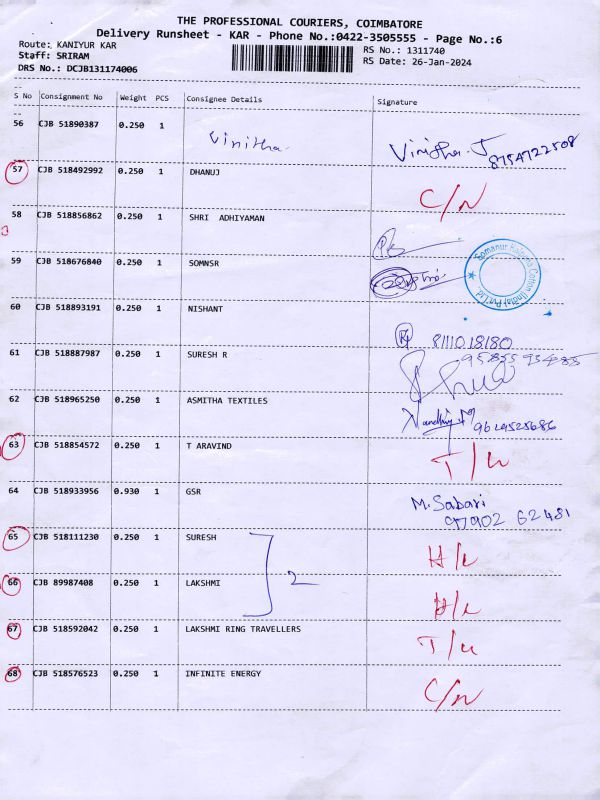 THE PROFESSIONAL COURIERS, COIMBATORE
Delivery Runsheet - KAR - Phone No.:0422-3505555 - Page No.:6
Route: KANIYUR KAR
RS No.: 1311740
Staff: SRIRAM
RS Date: 26-Jan-2024
DRS No.: DCJB131174006
S No Consignment No Weight PCS Consignee Details Signature
56 CJB 51890387 0.250 1 Vinitha Vinitha.J 8754722508
57 CJB 518492992 0.250 1 DHANUJ C/N
58 CJB 518856862 0.250 1 SHRI ADHIYAMAN
59 CJB 518676840 0.250 1 SOMNSR
Somanur Cotton (India) Pvt Ltd.
60 CJB 518893191 0.250 1 NISHANT 8111018180
61 CJB 518887987 0.250 1 SURESH R
62 CJB 518965250 0.250 1 ASMITHA TEXTILES 9629525686
63 CJB 518854572 0.250 1 T ARAVIND T/L
64 CJB 518933956 0.930 1 GSR M.Sabari
97902 62481
65 CJB 518111230 0.250 1 SURESH H/L
2
66 CJB 89987408 0.250 1 LAKSHMI H/L
67 CJB 518592042 0.250 1 LAKSHMI RING TRAVELLERS T/L
68 CJB 518576523 0.250 1 INFINITE ENERGY C/N